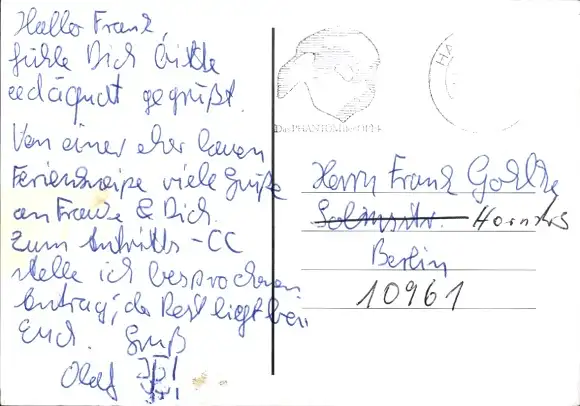 Hallo Frank,
fühle Dich bitte
gegrüßt.
Von einer eher lauen
Ferienkneipe viele Grüße
an Frauke & Dich.
Zum Antritts-CC
stelle ich besprochenen
Antrag, der Rest liegt bei
Euch. Gruß
Olaf
Das PHANTOM der OPER
HA
Herrn Frank
Solmsstr. Hornstr
Berlin
10961